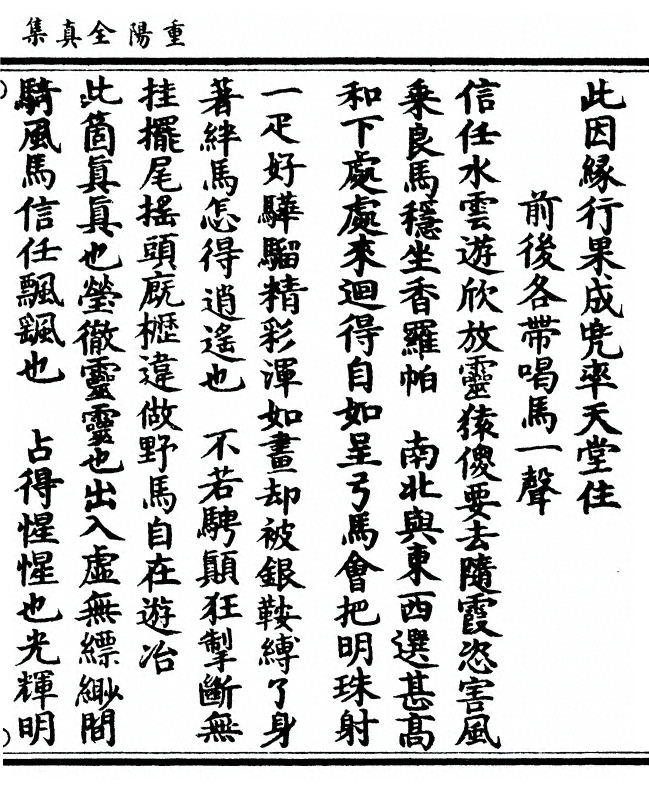 重陽全真集
此因緣行果成兜率天堂住
前後各帶喝馬一聲
信任水雲遊欣放靈猿傻要去隨霞恣害風
乘良馬穩坐香羅帕　南北與東西選甚高
和下處處來迴得自如呈弓馬會把明珠射
一疋好驊騮精彩渾如畫却被銀鞍縛了身
著絆馬怎得逍遙也　不若騁顛狂掣斷無
挂擺尾搖頭廐櫪違做野馬自在遊冶
此箇眞眞也瑩徹靈靈也出入虛無縹緲間
騎風馬信任飄颻也　占得惺惺也光輝明